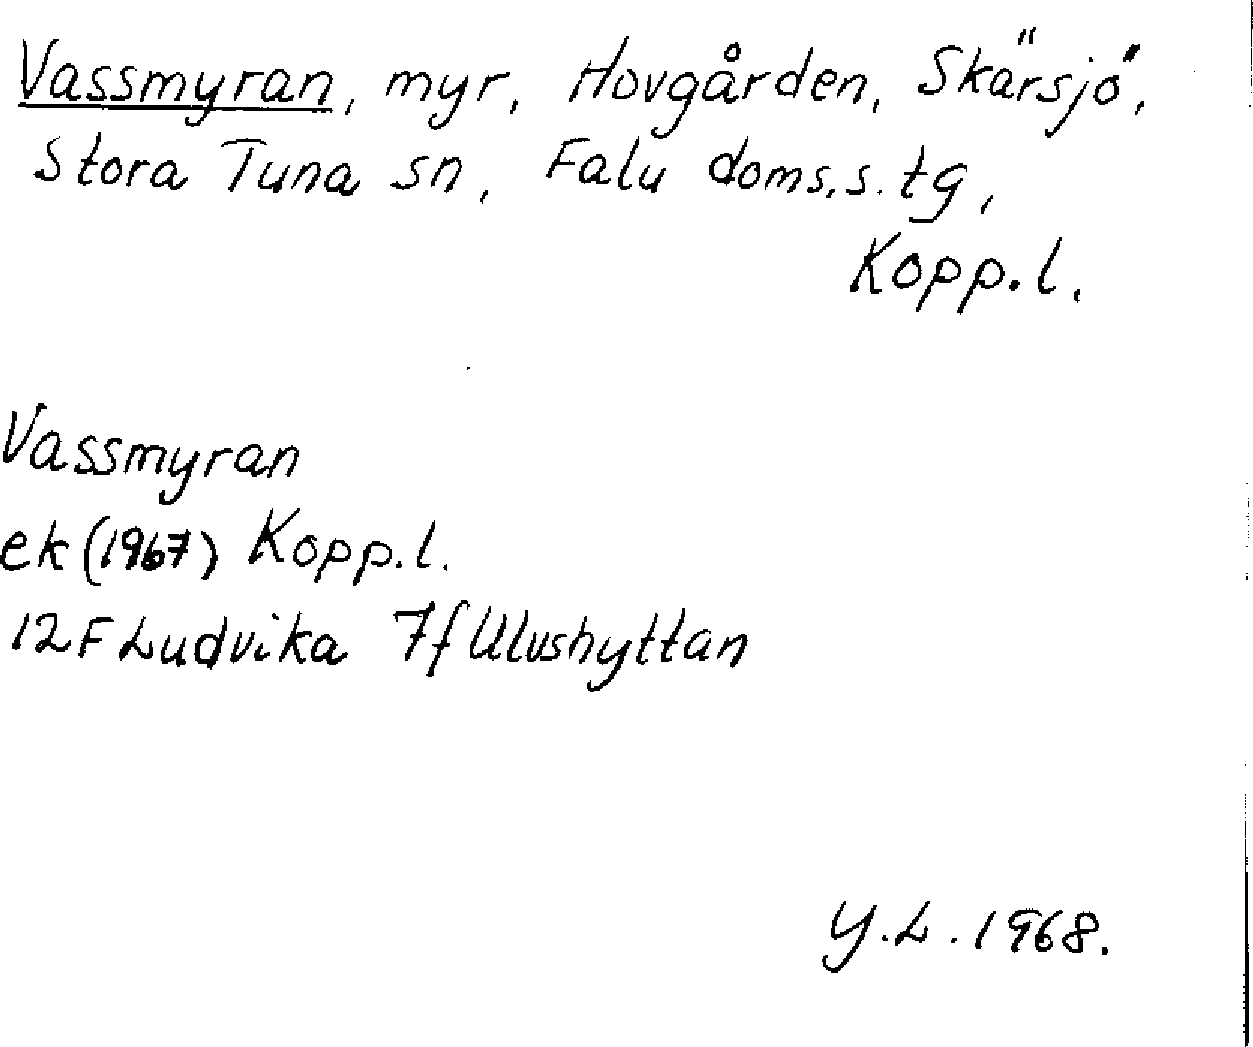 Vassmyran, myr, Hovgården, Skärsjö,
Stora Tuna sn, Falu doms.s. tg,
Kopp.l.
Vassmyran
ek (1967) Kopp.l.
12F Ludvika 7f Ulvshyttan
Y.L. 1968.